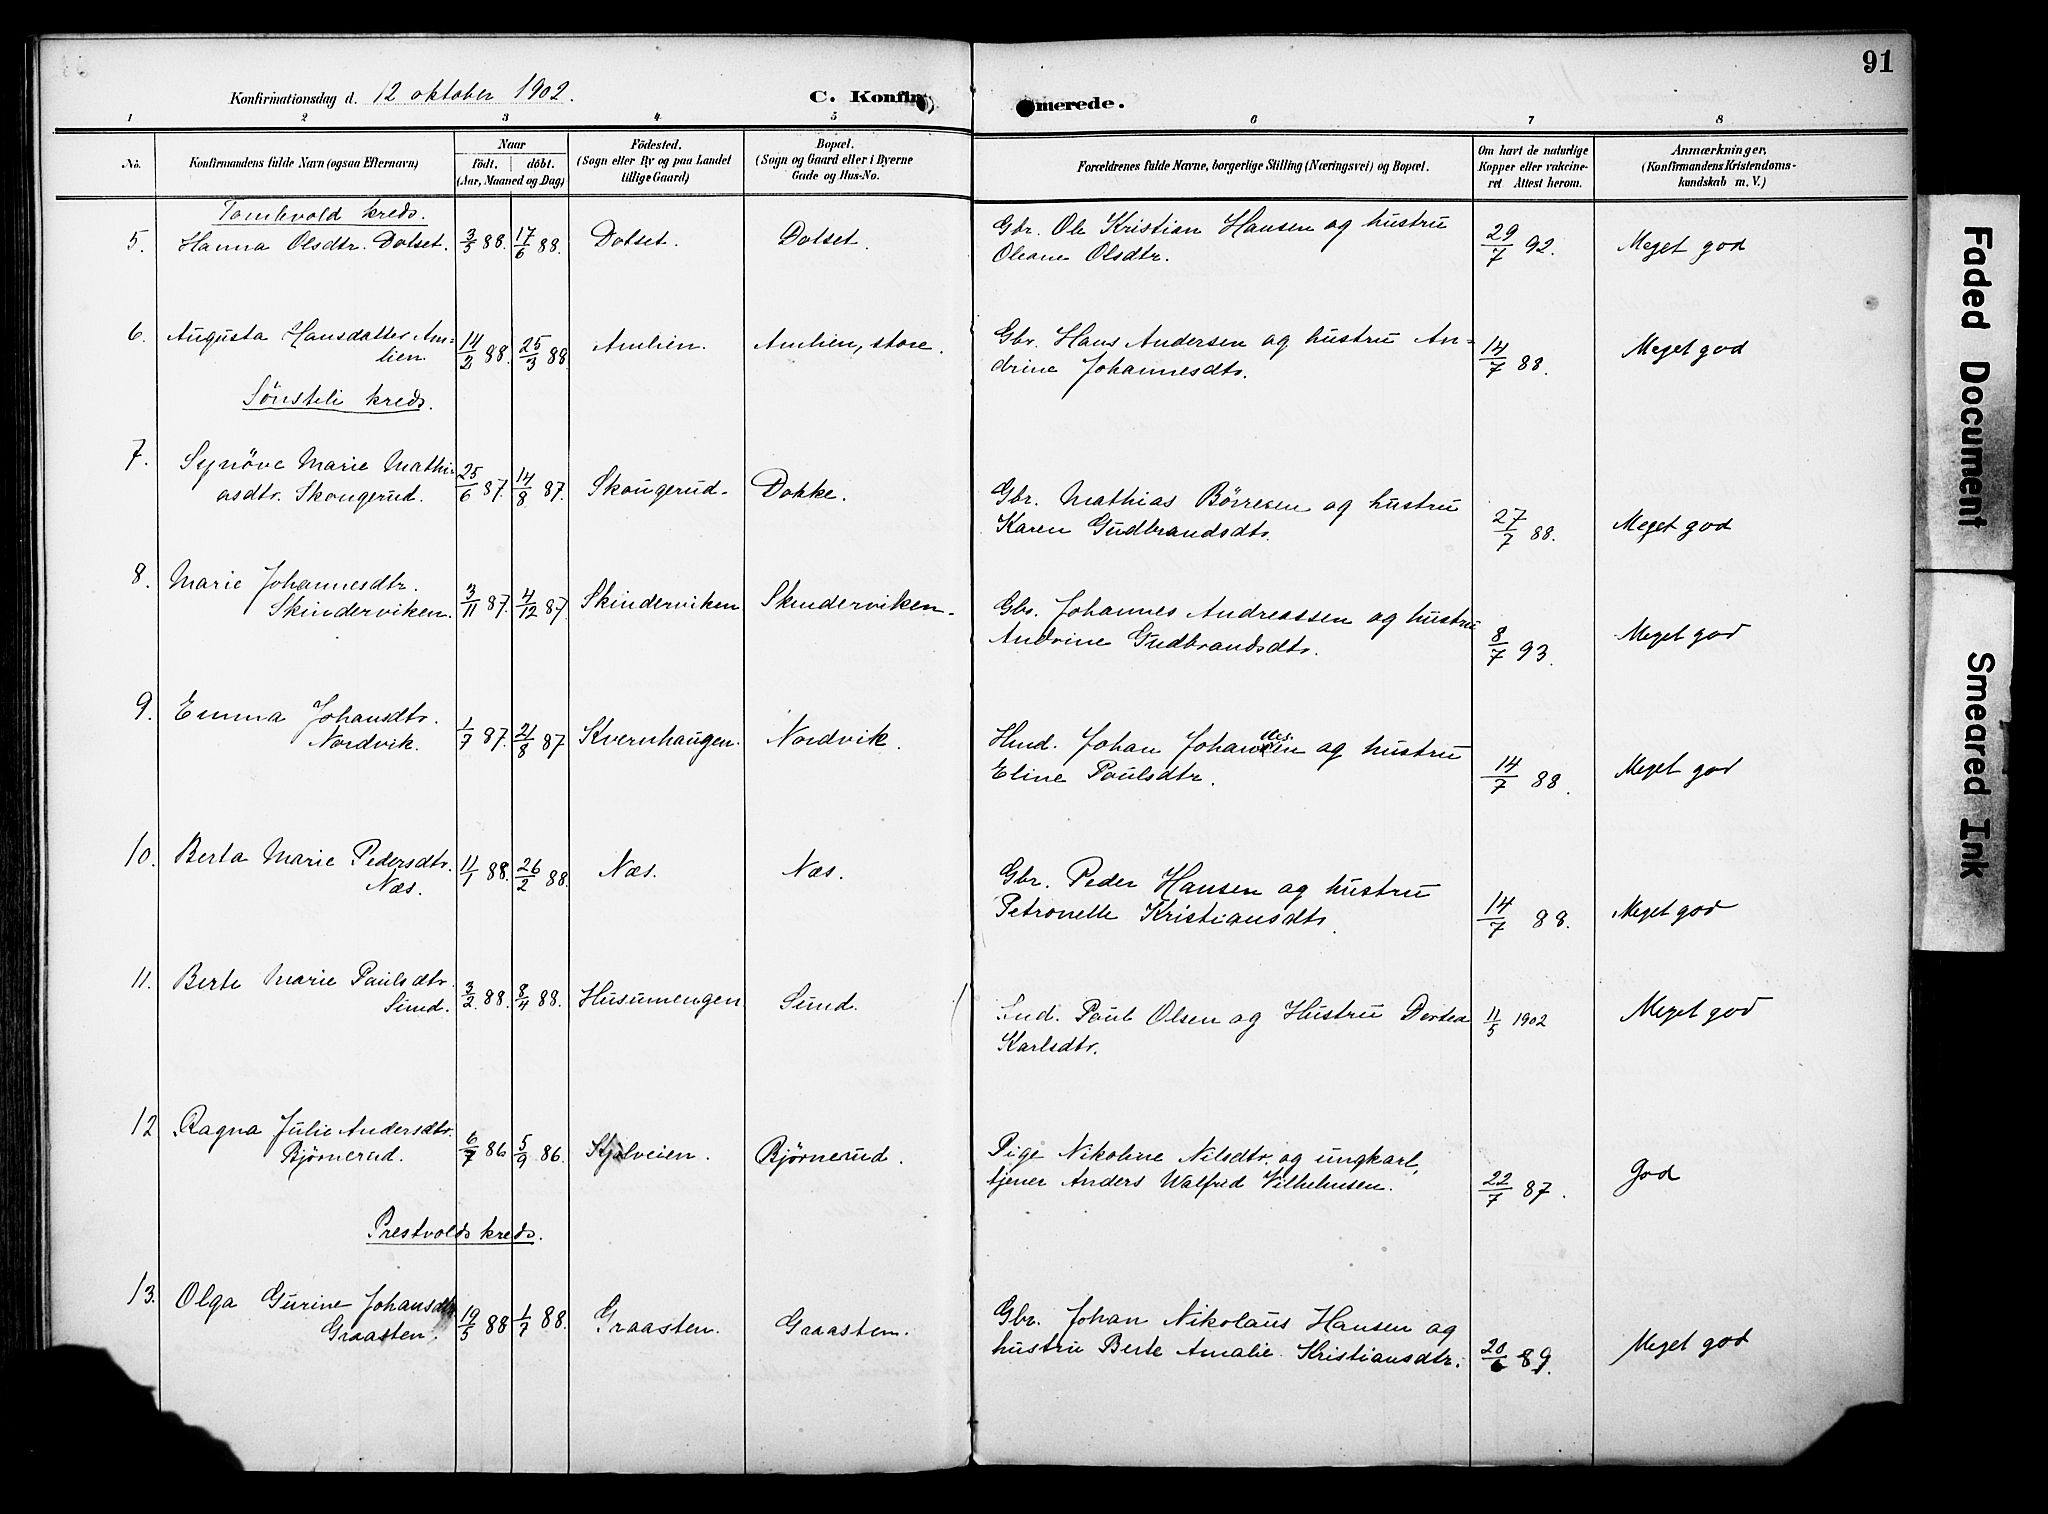 91
Konfirmationsdag d. 12 oktober 1902.
C. Konfir
merede.
1 2 3 4 5 6 7 8
No.
Konfirmandens fulde Navn (ogsaa Efternavn)
Naar
født. døbt.
(Aar, Maaned og Dag)
Fødested.
(Sogn eller By og paa Landet
tillige Gaard)
Bopæl.
(Sogn og Gaard eller i Byerne
Gade og Hus-No.
Forældrenes fulde Navne, borgerlige Stilling (Næringsvei) og Bopæl.
Om havt de naturlige
Kopper eller vakcine-
ret Attest herom.
Anmærkninger,
(Konfirmandens Kristendoms-
kundskab m. V.)
Tomlevold kreds.
5. Hanna Olsdtr. Dotset. 3/3 88. 17/6 88. Dotset. Dotset. Gbr. Ole Kristian Hansen og hustru 29/7 92. Meget god
Oleane Olsdtr.
6. Augusta Hansdatter Am- 14/2 88. 25/3 88 Amlien. Amlien, store. Gbr. Hans Andersen og hustru An- 14/7 88. Meget god
lien. drine Johannesdtr.
Sønsteli kreds.
7. Synøve Marie Mathi- 25/6 87. 14/8 87. Skougerud. Dokke. Gbr. Mathias Børresen og hustru 27/7 88. Meget god
asdtr. Skougerud. Karen Gudbrandsdtr.
8. Marie Johannesdtr. 3/11 87. 4/12 87. Skinderviken Skinderviken. Gbr. Johannes Andreassen og hustru 8/7 93. Meget god
Skinderviken. Andrine Gudbrandsdtr.
9. Emma Johansdtr. 1/7 87. 21/8 87 Kvernhaugen. Nordvik. Hmd. Johan Johannes.en og hustru 14/7 88. Meget god
Nordvik. Eline Paulsdtr.
10. Berta Marie Pedersdtr. 11/1 88. 26/2 88. Næs. Næs. Gbr. Peder Hansen og hustru 14/7 88. Meget god
Næs. Petronelle Kristiansdtr.
11. Berte Marie Paulsdtr. 3/2. 88. 8/4 88. Husumengen Sund. Ind. Paul Olsen og Hustru Dortea 11/5 1902 Meget god
Sund. Karlsdtr.
12 Ragna Julie Andersdtr. 6/7 86 5/9 86. Stjølveien. Bjørnerud. Pige Nikoline Nilsdtr. og ungkarl, 22/7 87. God
Bjørnerud. tjener Anders Walfrid Vilhelmsen.
Prestvolds kreds.
13. Olga Gurine Johansdtr 19/5 88 1/7 88. Graasten. Graasten. Gbr. Johan Nikolaus Hansen og 20/6 89. Meget god
Graasten. hustru Berte Amalie Kristiansdtr.
Faded Document
Smeared Ink